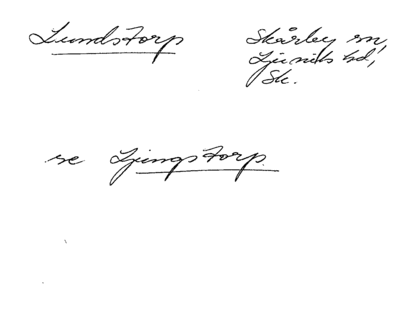 Lundstorp
Skårby sn,
Ljunits hd,
Sk.
se Ljungstorp.